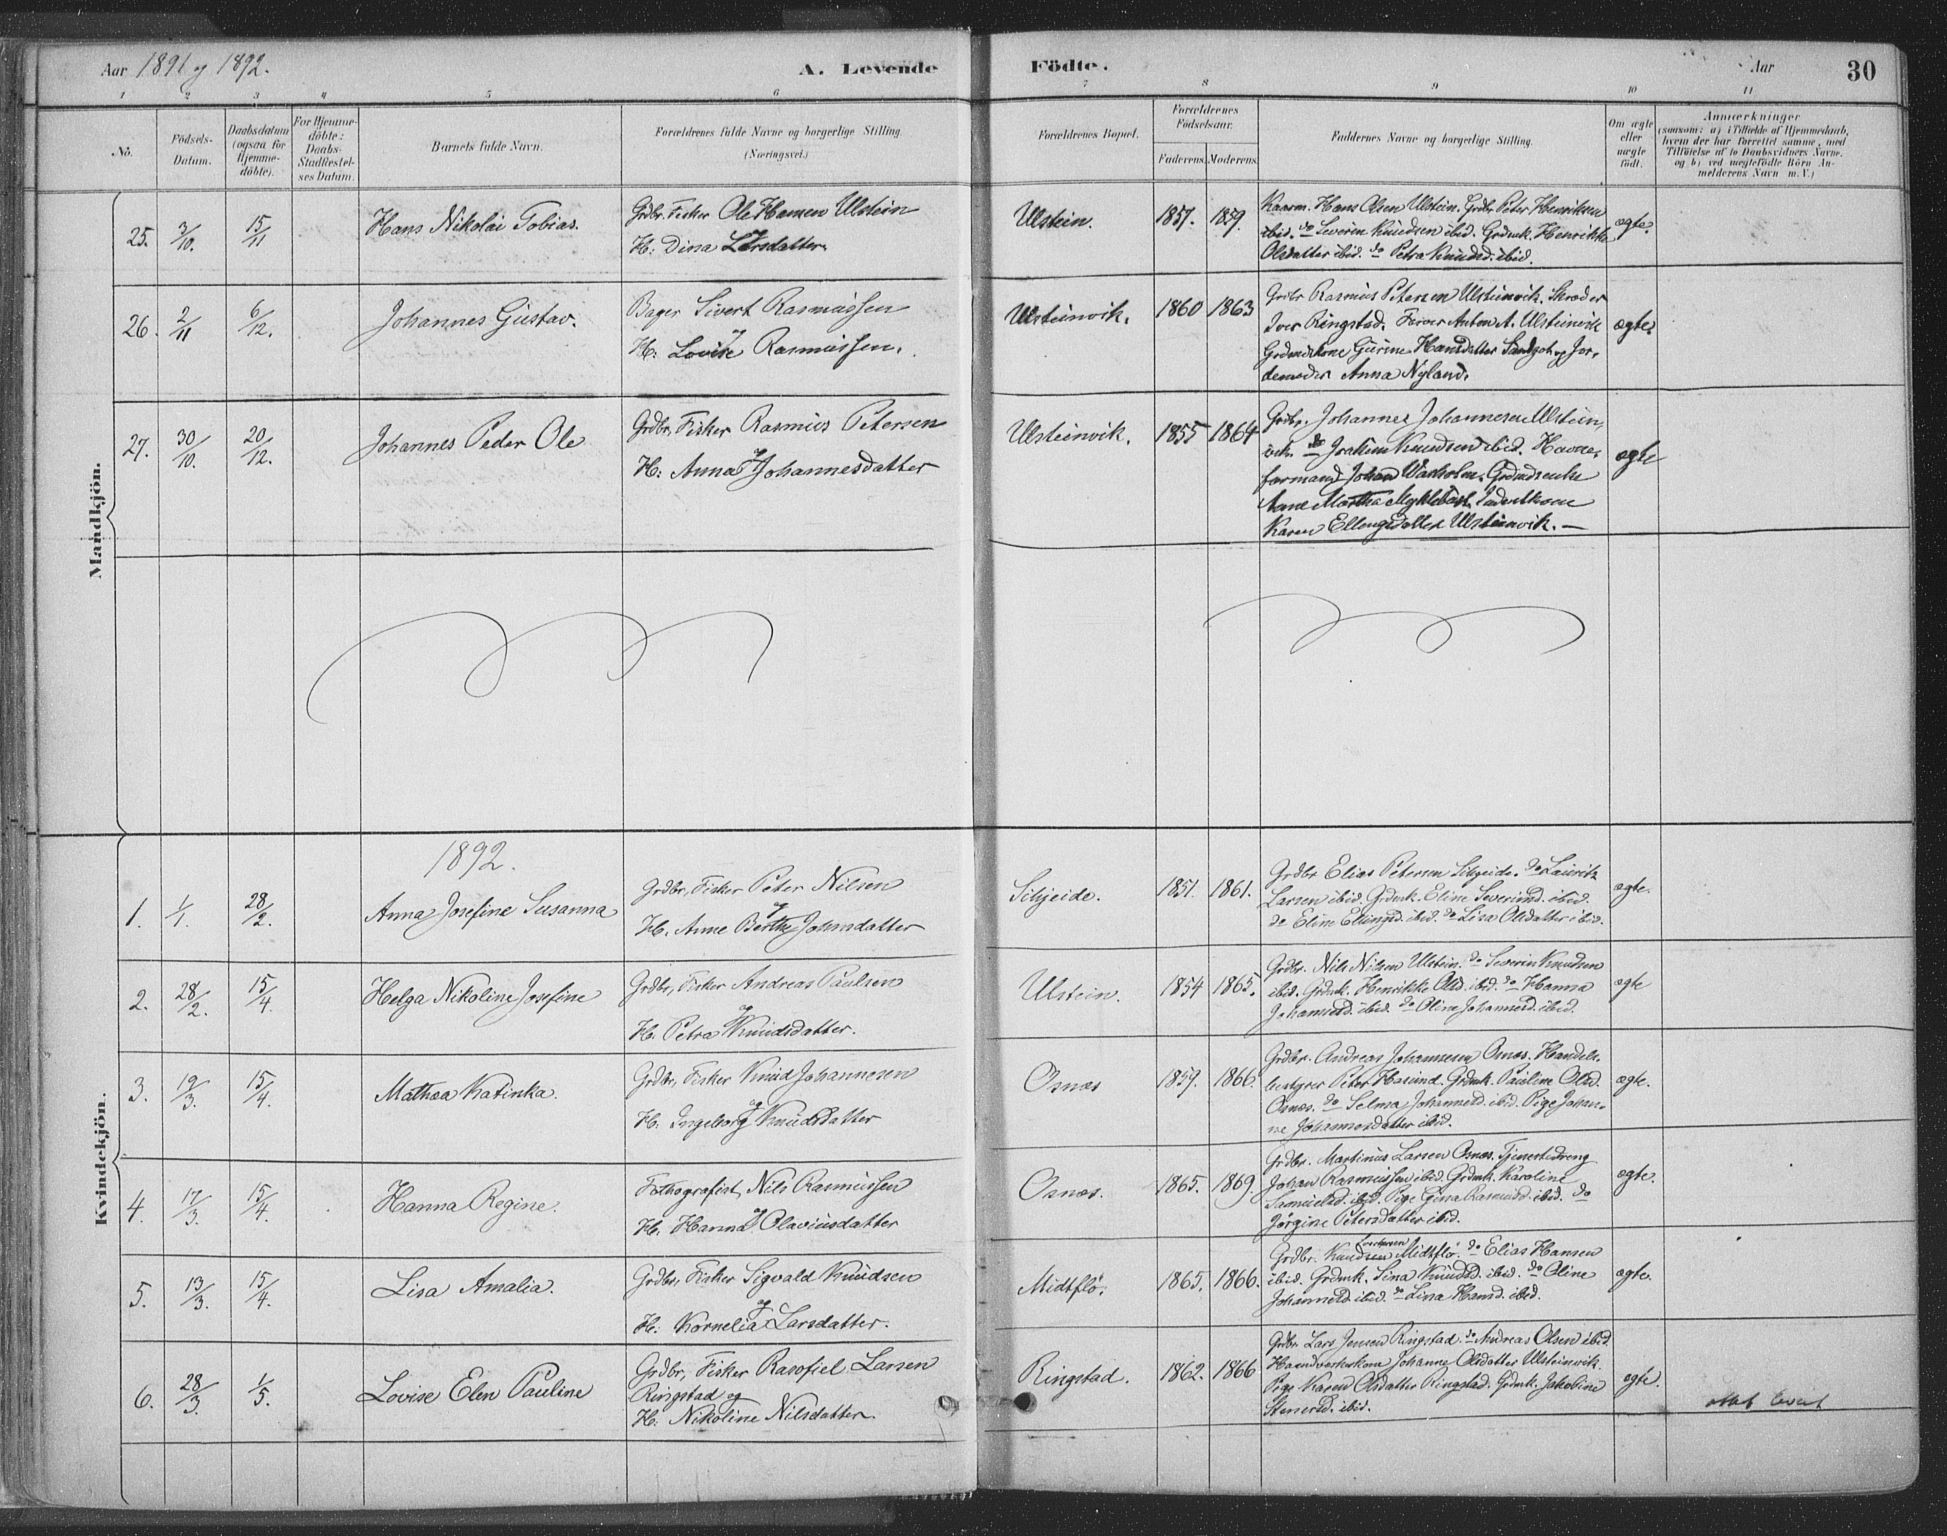 Aar 1891 og 1892.
A. Levende Fødte.
Aar
30
1 2 3 4 5 6 7 8 9 10 11
No.
Födsels-
Datum.
Daabsdatum
(ogsaa for
Hjemme-
döbte).
For Hjemme-
döbte:
Daabs-
Stadfæstel-
ses Datum.
Barnets fulde Navn.
Forældrenes fulde Navne og borgerlige Stilling.
(Næringsvei.)
Forældrenes Bopæl.
Forældrenes
Födselsaar.
Faderens. Moderens.
Faddernes Navne og borgerlige Stilling.
Om ægte
eller
uægte
født.
Anmærkninger
(saasom: a) i Tilfælde af Hjemmedaab,
hvem der har forrettet samme, med
Tilföielse af to Daabsvidners Navne,
og b) ved uægtefödte Börn An-
melderens Navn m. V.)
Mandkjön.
25. 3/10. 15/11 Hans Nikolai Tobias.
Grdbr. Fisker Ole Hansen Ulstein
H: Dina Larsdatter.
Ulstein. 1857. 1859.
Hans Olsen Ulstein. Grdbr Peter Henriksen
ibid. do Severin Knudsen ibid. Grdmk. Henrikke
Olsdatter ibid. do Petra Knudsd. ibid.
ægte.
26. 2/11 6/12. Johannes Gustav.
Bager Sivert Rasmussen
og
H: Lovise Rasmussen.
Ulsteinvik. 1860 1863
Grdbr Rasmus Petersen Ulsteinvik. Skræder
Iver Ringstad. Farver Anton A. Ulsteinvik
Grdmdskone Gurine Hansdatter og Jor-
demoder Anna Nyland.
ægte.
27. 30/10. 20/12. Johannes Peder Ole
Grdbr, Fisker Rasmus Petersen
og
H: Anna Johannesdatter
Ulsteinvik. 1855 1864
Grdbr. Johannes Johannesen Ulstein-
vik. do Joakim Knudsen ibid. Havne-
formand Johan Grdmdsenke
Martha Myklebust,
Karen Ellingsdatter Ulsteinvik. —
ægte
Kvindekjön.
1892.
1. 1/1. 28/2. Anna Josefine Susanna
Grdbr, Fisker Peter Nilsen
og
H. Anne Berthe Johnsdatter
Schjeide. 1851. 1861.
Grdbr Elias Petersen Schjeide. do Lauritz
Larsen ibid. Grdmk. Eline Severinsd. ibid.
do Eline Ellingsd. ibid. do Lisa Olsdatter ibid.
ægte.
2. 28/2. 15/4. Helga Nikoline Josefine
Grdbr, Fisker Andreas Paulsen
og
H. Petra Knudsdatter.
Ulstein. 1854 1865.
Grdbr. Nils Nilsen Ulstein. do Severin Knudsen
ibid. Grdmk. Henrikke Olsd. ibid. do Hanna
Johannesd. ibid. do Oline Johannesd. ibid.
ægte
3. 19/3. 15/4. Mathea Katinka.
Grdbr, Fisker Knud Johannesen
og
H. Ingeborg Knudsdatter
Osnæs 1859. 1866.
Grdbr. Andreas Johannesen Osnæs. Handels-
bestyrer Peter Hasund. Grdmk. Pauline Olsd.
Osnæs. do Selma Johannesd. ibid. Pige Johan-
ne Johannesdatter ibid.
ægte.
4. 17/3. 15/4. Hanna Regine.
Fothografist, Nils Rasmussen
og
H. Hanna Olaviusdatter
Osnæs. 1865. 1869
Grdbr. Martinus Larsen Osnæs. Tjenestedreng
Johan Rasmussen ibid. Grdmk. Karoline
Samuelsd. ibid. Pige Gina Rasmusd. ibid. do
Jørgine Petersdatter ibid.
ægte.
5. 13/3. 15/4. Lisa Amalia.
Grdbr, Fisker Sigvald Knudsen
og
H: Kornelia Larsdatter.
Midtflø. 1865. 1866.
Grdbr. Knudsen Midtflø. do Elias Hansen
ibid. Grdmk. Sina Knudsd. ibid. do Oline
Johannesd. ibid. do Lina Hansd. ibid.
ægte.
6. 28/3. 1/5. Lovise Elen Pauline
Grdbr, Fisker Rasofiel Larsen
Ringstad og
H. Nikoline Nilsdatter.
Ringstad. 1862. 1866
Grdbr. Lars Jensen Ringstad. do Andreas Olsen ibid.
Haandverkskone Johanne Olsdatter Ulsteinvik.
Pige Karen Olsdatter Ringstad. Grdmk. Jakobine
Stenersd. ibid.
ægte.